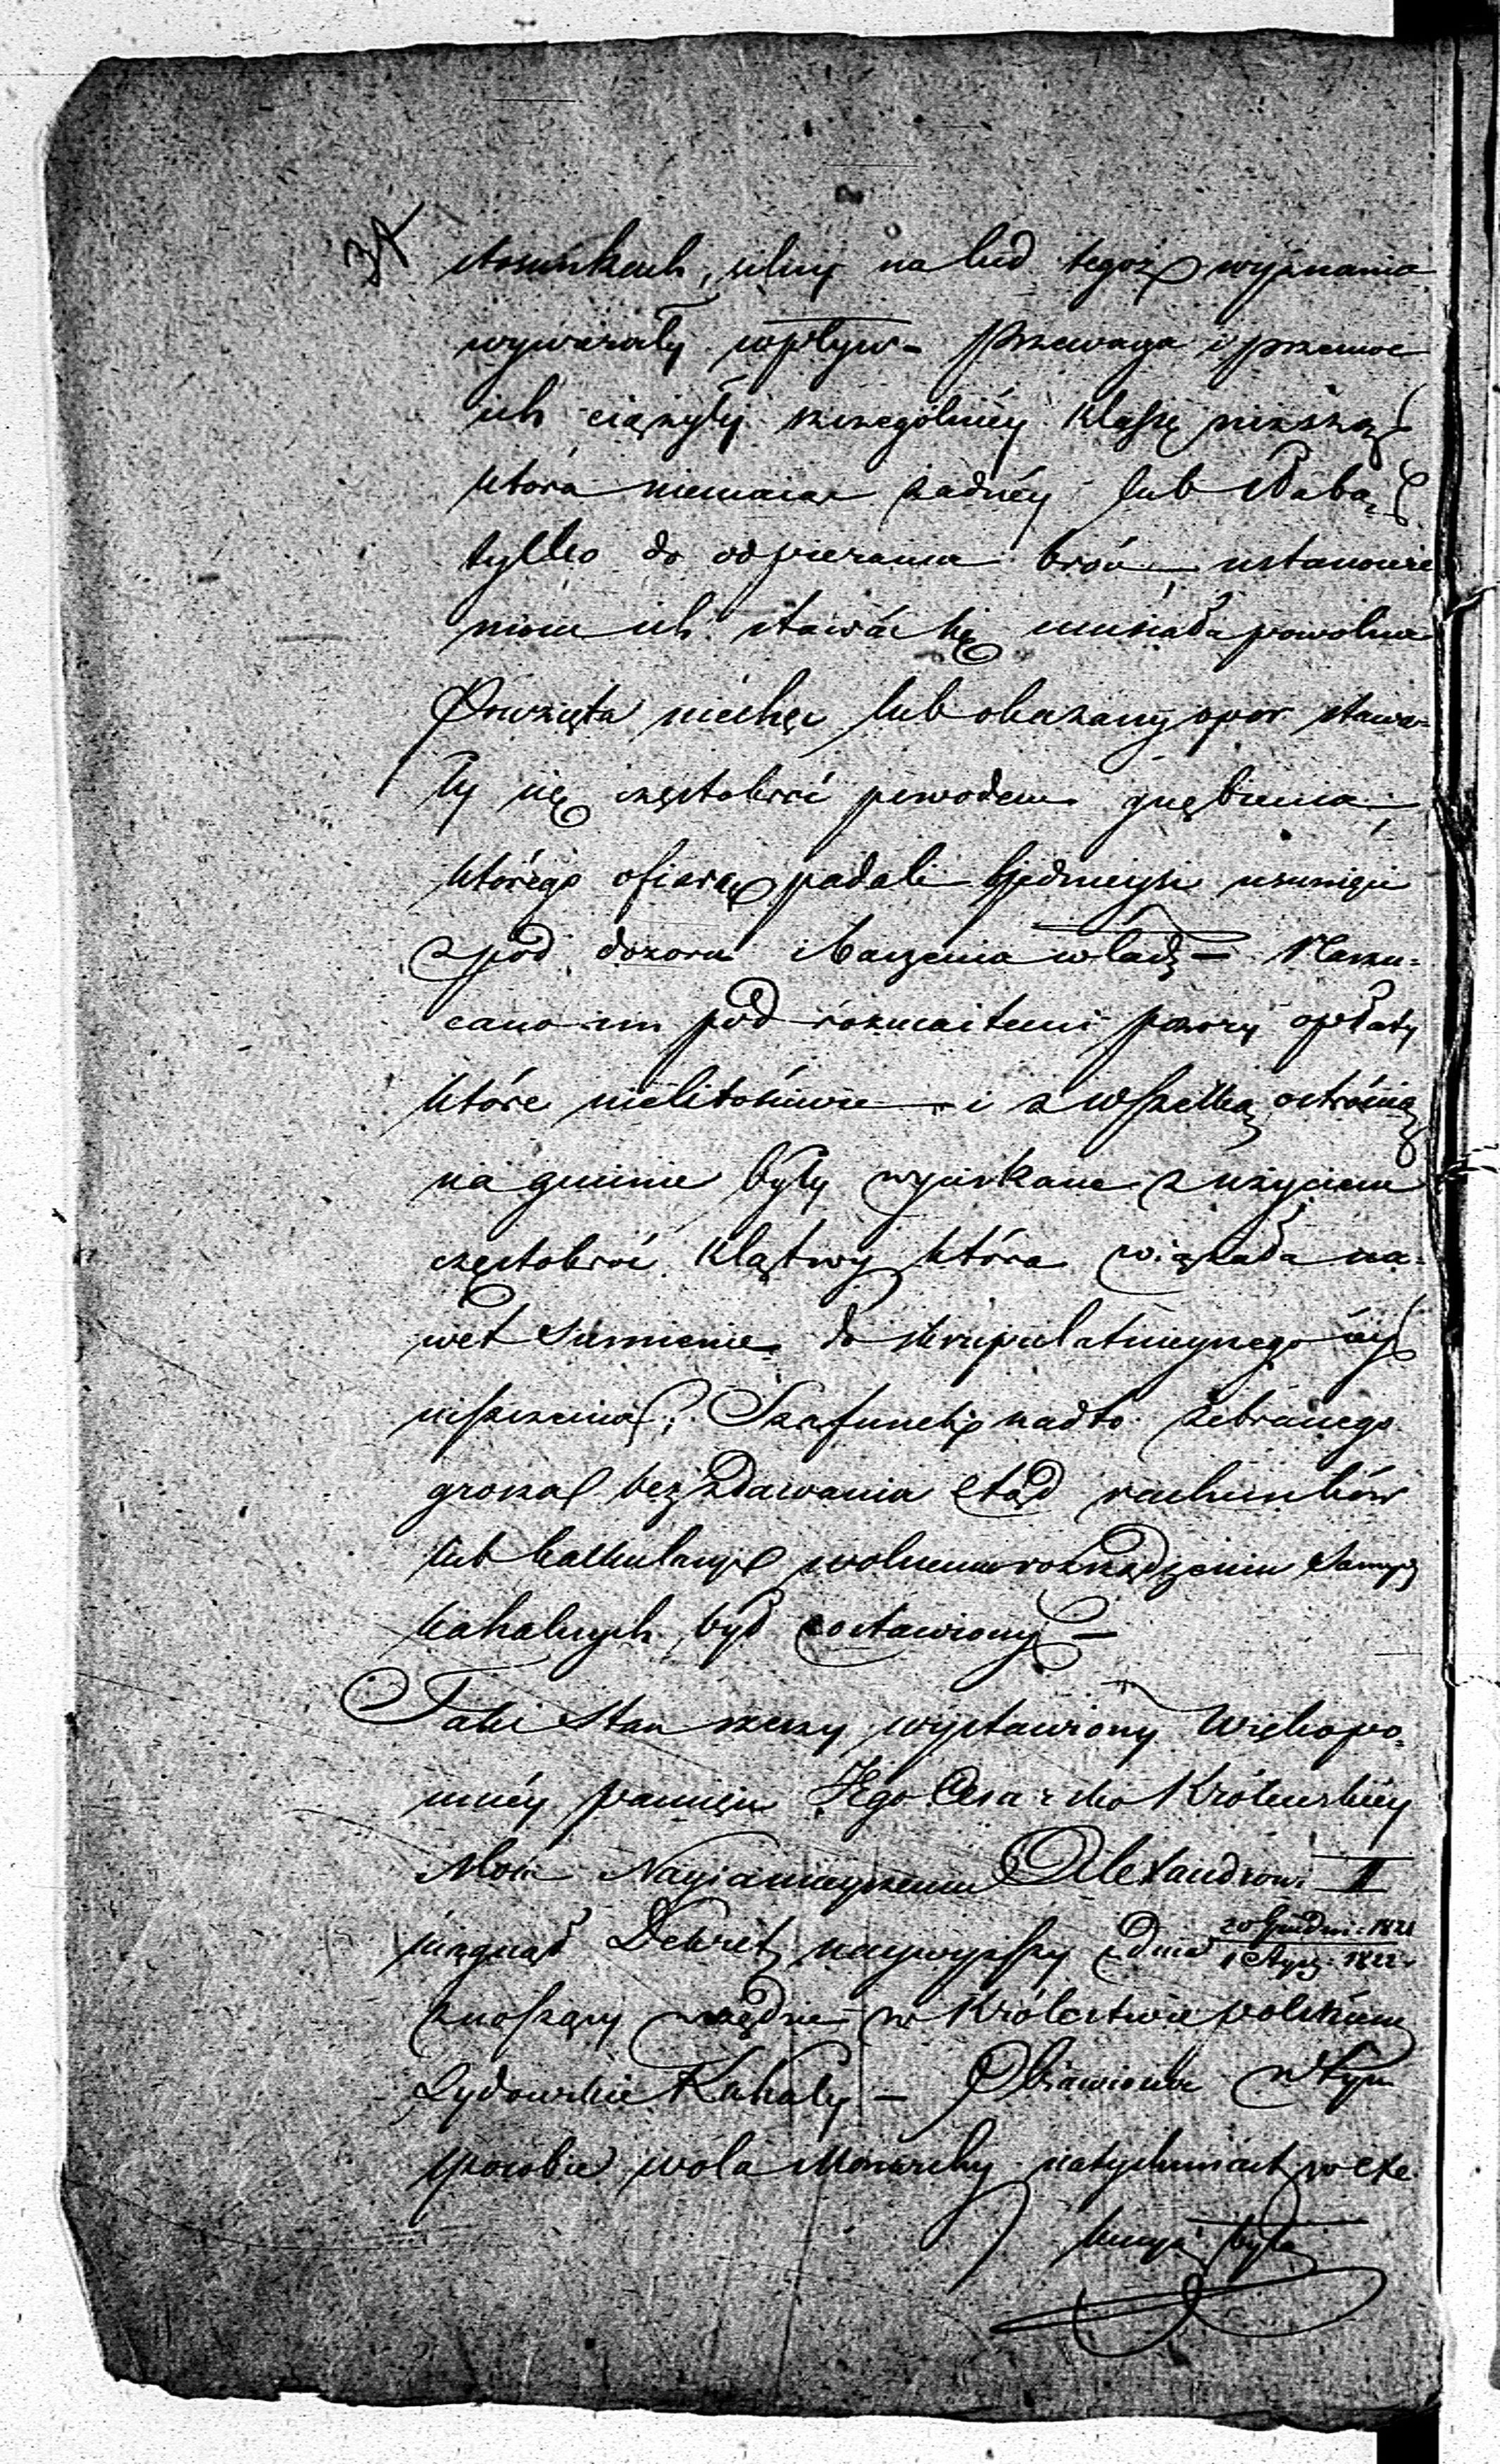 34
stosunkach, silny na lud tegoż wyznania
wywierały wpływ – przewaga i przemoc
ich ciążyły szczególniéy klassę niższą
która niemaiąc żadnéy lub słabą
tylko do odpierania broń, ustanowie
niom ich stawać się musiała powolna
Powzięta niechęć lub okazany opor stawa=
ły się częstokroć powodem gnębienia,
którego ofiarą padali biednieysi usunięci
z pod dozoru i baczenia władz – Narzu=
cano im pod rozmaitemi pozory opłaty
które nielitościwie i z wszelką ostrością
na gminie były wyciskane z użyciem
częstokroć klątwy która wiązała na=
wet sumienie do skrupulatnieyszego
uiszczenia. Szafunek nadto zebranego
grosza bez zdawania ztąd rachunków
lub kalkulacyi wolnemu rozrządzeniu
kahalnych był zostawiony –
Taki stan rzeczy wystawiony Wiekopo=
mnéy pamięci Jego Cesarsko Królewskiéy
Mości Nayiaśnieyszemu Alexandrowi I
ściągnął Dekret naywyższy z dnia 20 Grudni. 1821 / 1 Stycz. 1822.
znoszący wszędzie w Królestwie polskiem
Żydowskie Kahały – Obiawiona w tym
sposobie wola Monarchy natychmiast w exe
kucyi była